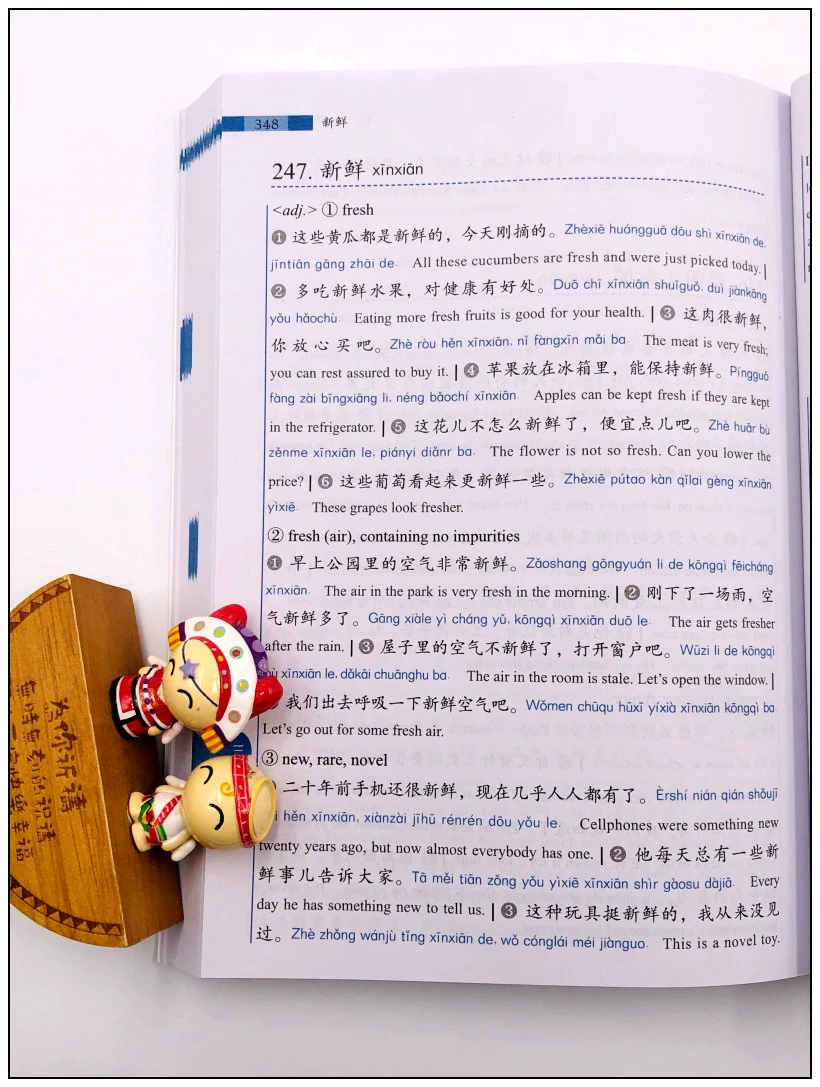 348 新鲜
247. 新鲜 xīnxiān
<adj.> ① fresh
❶ 这些黄瓜都是新鲜的，今天刚摘的。Zhèxiē huángguā dōu shì xīnxiān de,
jīntiān gāng zhāi de. All these cucumbers are fresh and were just picked today. |
❷ 多吃新鲜水果，对健康有好处。Duō chī xīnxiān shuǐguǒ, duì jiànkāng
yǒu hǎochù. Eating more fresh fruits is good for your health. | ❸ 这肉很新鲜，
你放心买吧。Zhè ròu hěn xīnxiān, nǐ fàngxīn mǎi ba. The meat is very fresh;
you can rest assured to buy it. | ❹ 苹果放在冰箱里，能保持新鲜。Píngguǒ
fàng zài bīngxiāng li, néng bǎochí xīnxiān. Apples can be kept fresh if they are kept
in the refrigerator. | ❺ 这花儿不怎么新鲜了，便宜点儿吧。Zhè huār bù
zěnme xīnxiān le, piányi diǎnr ba. The flower is not so fresh. Can you lower the
price? | ❻ 这些葡萄看起来更新鲜一些。Zhèxiē pútao kàn qǐlai gèng xīnxiān
yìxiē. These grapes look fresher.
② fresh (air), containing no impurities
❶ 早上公园里的空气非常新鲜。Zǎoshang gōngyuán li de kōngqì fēicháng
xīnxiān. The air in the park is very fresh in the morning. | ❷ 刚下了一场雨，空
气新鲜多了。Gāng xiàle yì cháng yǔ, kōngqì xīnxiān duō le. The air gets fresher
after the rain. | ❸ 屋子里的空气不新鲜了，打开窗户吧。Wūzi li de kōngqì
bù xīnxiān le, dǎkāi chuānghu ba. The air in the room is stale. Let's open the window. |
我们出去呼吸一下新鲜空气吧。Wǒmen chūqu hūxī yíxià xīnxiān kōngqì ba.
Let's go out for some fresh air.
③ new, rare, novel
二十年前手机还很新鲜，现在几乎人人都有了。Èrshí nián qián shǒujī
hěn xīnxiān, xiànzài jīhū rénrén dōu yǒu le. Cellphones were something new
twenty years ago, but now almost everybody has one. | ❷ 他每天总有一些新
鲜事儿告诉大家。Tā měi tiān zǒng yǒu yìxiē xīnxiān shìr gàosu dàjiā. Every
day he has something new to tell us. | ❸ 这种玩具挺新鲜的，我从来没见
过。Zhè zhǒng wánjù tǐng xīnxiān de, wǒ cónglái méi jiànguo. This is a novel toy.
為你祈禱